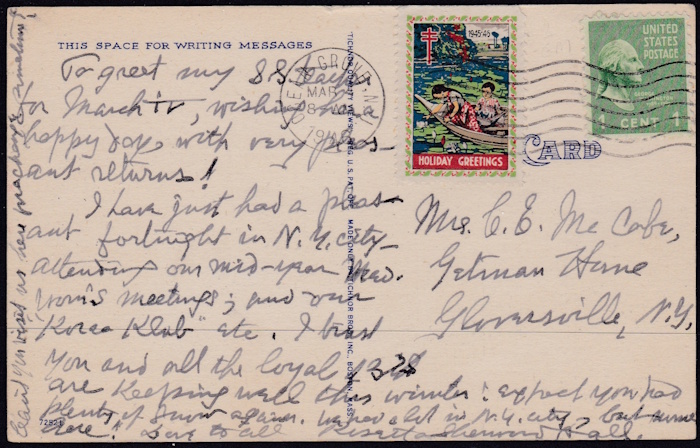 THIS SPACE FOR WRITING MESSAGES
To greet my S.S.
for March wishing her
happy day, with very pleas-
ant returns!
I have just had a pleas-
ant fortnight in N.Y. city -
attending our mid-year Med.
Wom's meetings; and our
"Korea Klub" etc. I trust
you and all the loyal
are keeping well this winter: expect you had
plenty of snow again. We had a lot in N.Y. city, but
here. Love to all Rosetta Sherwood Hall.
Can't you visit us here
72521
TICHNOR QUALITY VIEWS REG. U.S. PAT. OFF. MADE ONLY BY TICHNOR BROS., INC., BOSTON, MASS.
MAR
1945·46
HOLIDAY GREETINGS
UNITED
STATES
POSTAGE
1 CENT 1
CARD
Mrs. C. E. Mc Cabe,
Getman Home
Gloversville, N.Y.